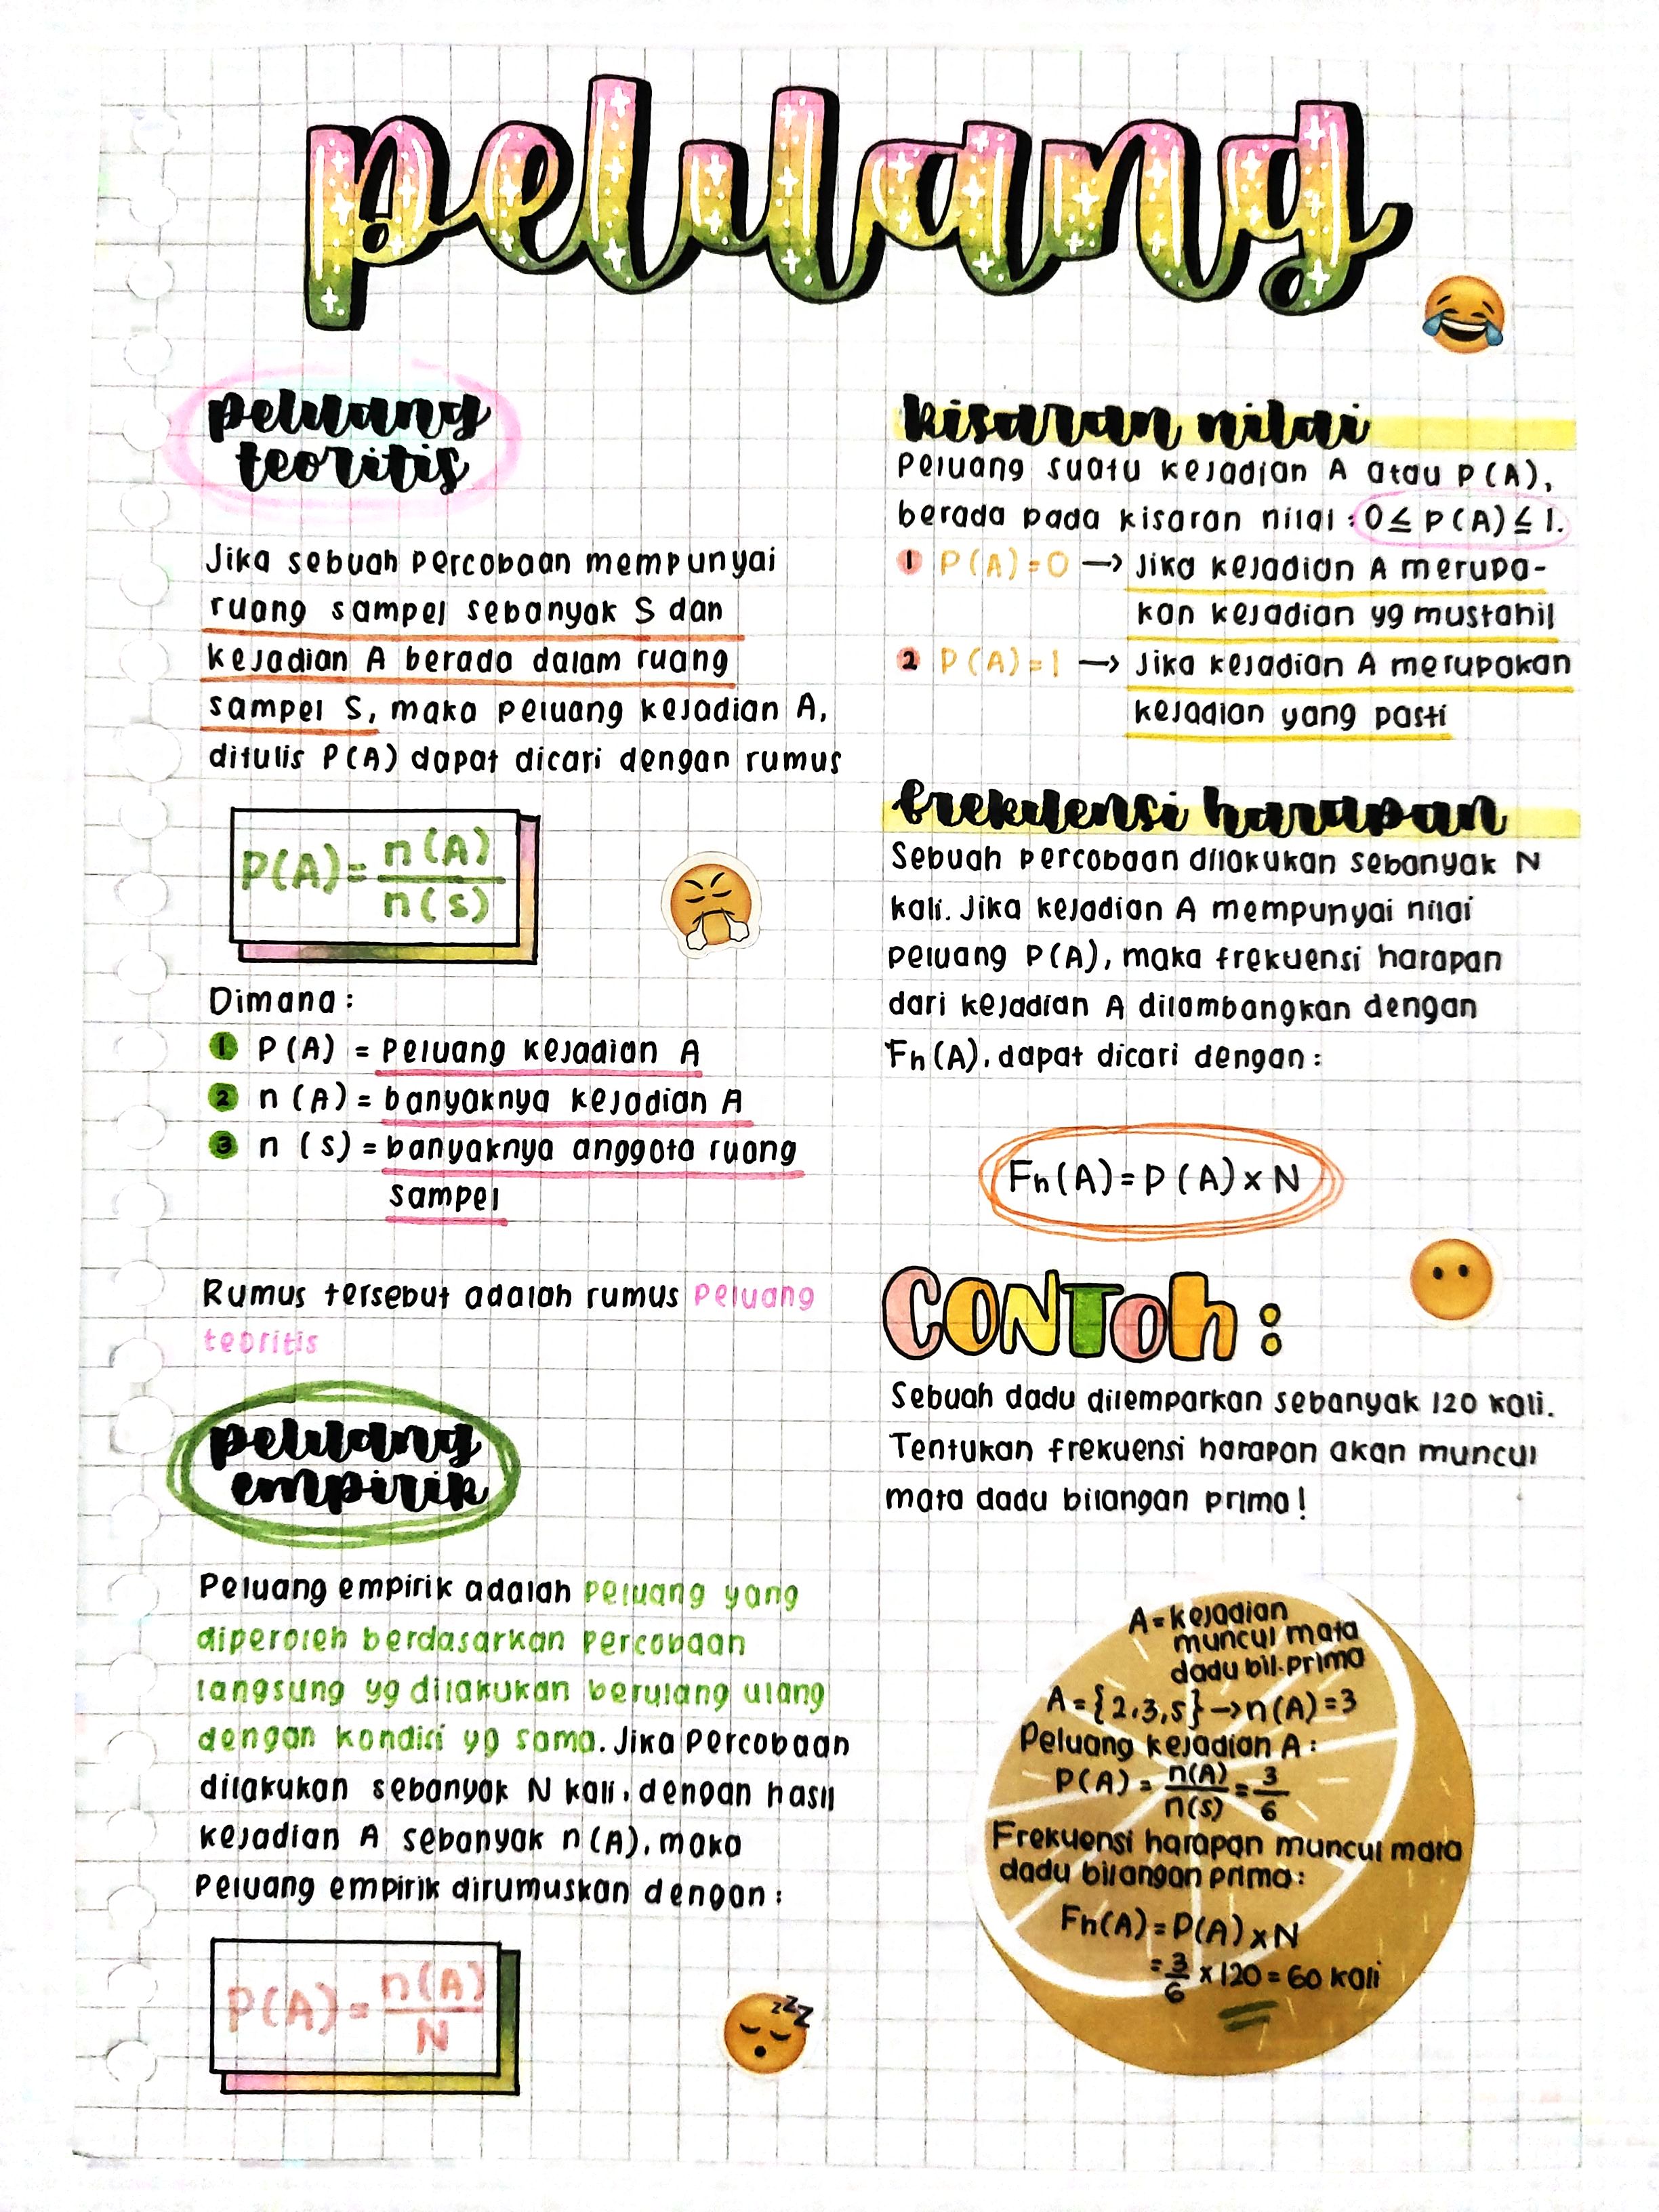 peluang
peluang
teoritis
Jika sebuah percobaan mempunyai
ruang sampel sebanyak S dan
kejadian A berada dalam ruang
sampel S, maka peluang kejadian A,
ditulis P(A) dapat dicari dengan rumus
P(A) = n(A)/n(s)
Dimana :
1 P(A) = Peluang kejadian A
2 n(A) = banyaknya kejadian A
3 n(s) = banyaknya anggota ruang
sampel
Rumus tersebut adalah rumus peluang
teoritis
peluang
empirik
Peluang empirik adalah peluang yang
diperoleh berdasarkan percobaan
langsung yg dilakukan berulang ulang
dengan kondisi yg sama. Jika percobaan
dilakukan sebanyak N kali, dengan hasil
kejadian A sebanyak n(A), maka
Peluang empirik dirumuskan dengan :
P(A) = n(A)/N
zzz
kisaran nilai
Peluang suatu kejadian A atau P(A),
berada pada kisaran nilai : 0 ≤ P(A) ≤ 1.
1 P(A) = 0 → Jika kejadian A merupa-
kan kejadian yg mustahil
2 P(A) = 1 → Jika kejadian A merupakan
kejadian yang pasti
frekuensi harapan
Sebuah percobaan dilakukan sebanyak N
kali. Jika kejadian A mempunyai nilai
peluang P(A), maka frekuensi harapan
dari kejadian A dilambangkan dengan
Fh(A), dapat dicari dengan :
Fh(A) = P(A) x N
CONTOh :
Sebuah dadu dilemparkan sebanyak 120 kali.
Tentukan frekuensi harapan akan muncul
mata dadu bilangan prima!
A = kejadian
muncul mata
dadu bil. prima
A = {2,3,5} → n(A) = 3
Peluang kejadian A :
P(A) = n(A)/n(s) = 3/6
Frekuensi harapan muncul mata
dadu bilangan prima :
Fh(A) = P(A) x N
= 3/6 x 120 = 60 kali